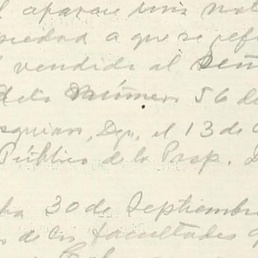 aparece una not
piedad a que se refi
vendida al Señ
Número 56 de
Dep. el 13 de
Público de la Prop. D
30 de Septiembre
de las facultades q